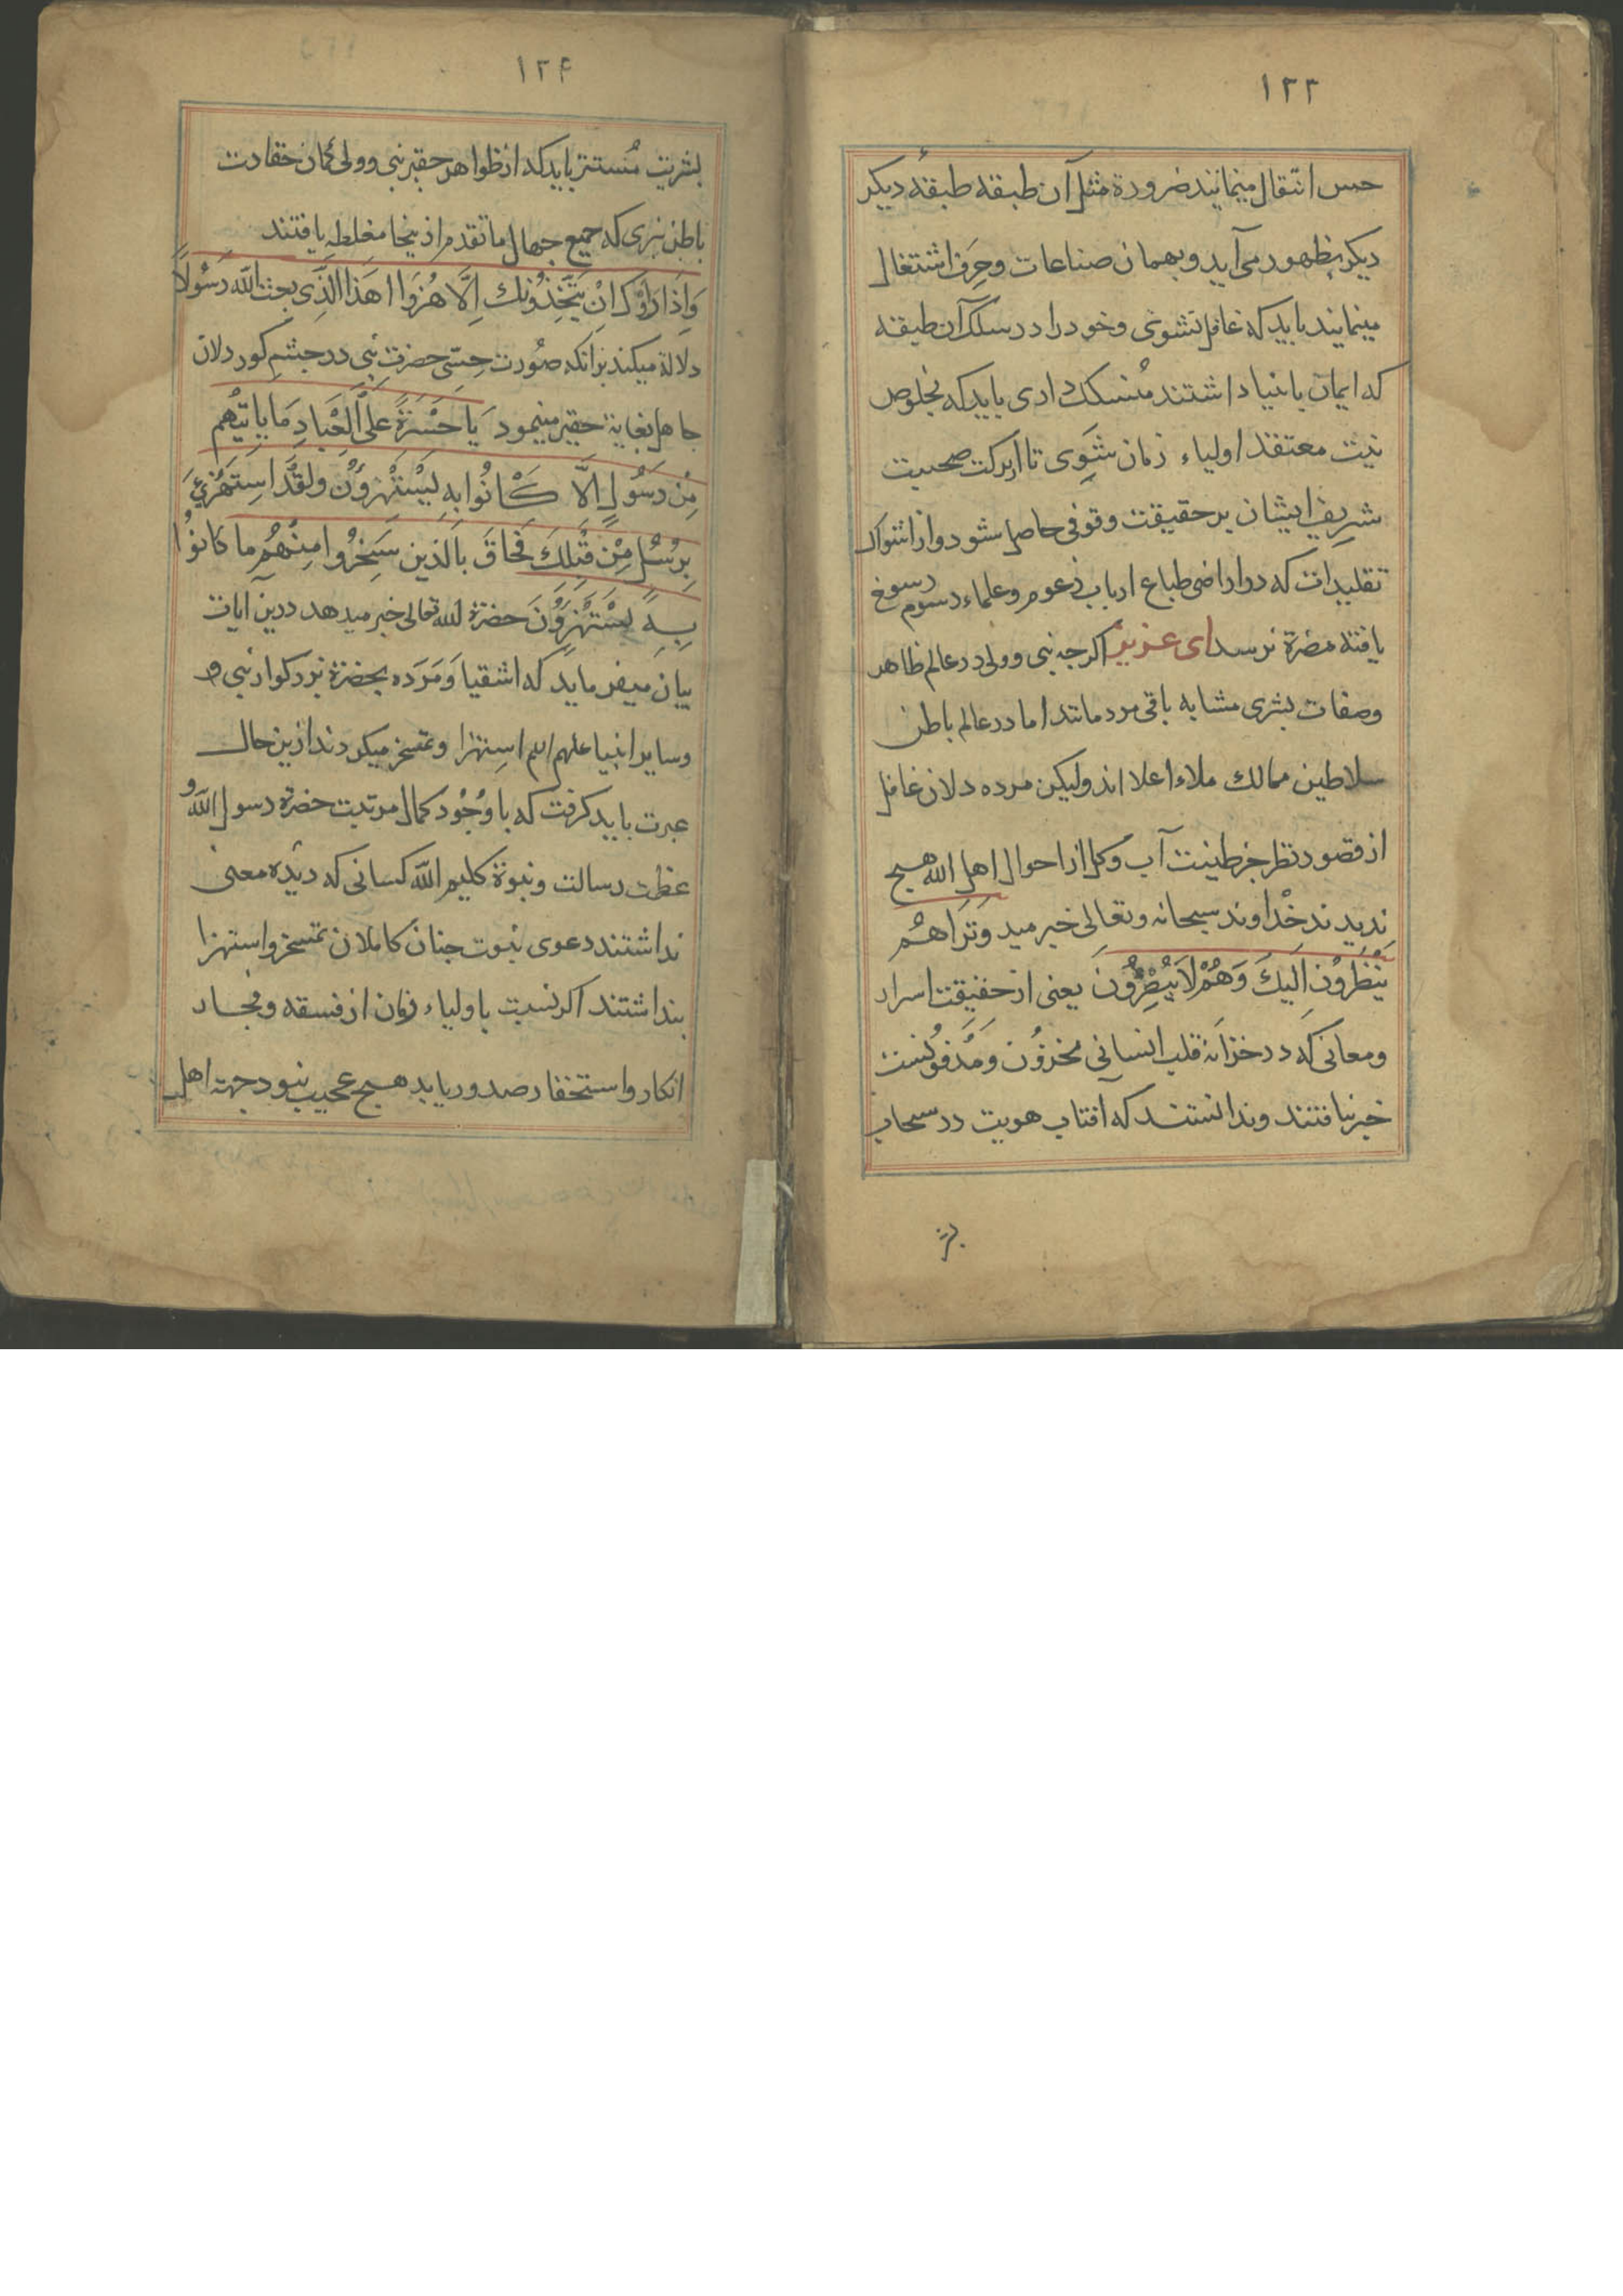 ۱۲۳
حس انتقال مینمانید ضرورة مثل آن طبقه طبقهٔ دیکر
دیکر بظهور می آید و بهمان صناعات و حِرَف اشتغال
مینمایند باید که غافل نشوی و خود را در سلک آن طبقه
که ایمان بانبیا داشتند مُنسلک داری باید که بخلوص
نیت معتقد اولیاء زمان شَوی تا از برکت صحبت
شریف ایشان بر حقیقت وقوفی حاصل شود و از اشواک
تقلیدات که در اراضی طباع ارباب زعوم و علماء رسوم رسوخ
یافته مضرة نرسد ای عزیز اکرجه نبی و ولی در عالم ظاهر
وصفات بشری مشابه باقی مردمانند اما در عالم باطن
سلاطین ممالک ملاء اعلا اند ولیکن مرده دلان غافل
از قصور نظر جز طینت آب و کل از احوال اهل الله هیچ
ندیدند خداوند سبحانه وتعالی خبر مید وَتَرَاهُم
يَنْظُرُونَ اِلَيكَ وَهُمْ لَا يُبْصِرُونَ یعنی از حقیقت اسرار
ومعانی که در خزانهٔ قلب انسانی مخزوُن وَمَدفوُنست
خبر نیافتند و ندانستند که آفتاب هویت در سحاب
بشر
۱۲۴
بشریت مُستتر باید که از ظواهر حقیر نبی وولی کمان حقارت
باطن نبری که جمیع جهال ما تقدم از ینجا مغلطه یافتند
وَاِذَا رَاَوْكَ اِنْ يَتَّخِذُونَكَ اِلَّا هُزُوًا اهَذَا الَّذِی بعث اللّه رَسُولًا
دلالة میکند برانکه صُورت حِسّی حضرت نبی در جشم کور دلان
جاهل بغایة حقیر مینمود يَا حَسْرَةً عَلَى الْعِبَادِ مَا يَاتيْهِم
مِنْ رَسُولٍ اِلَّا كَانُوا بِه يَسْتَهْزِؤُنَ ولقَدِ اسْتُهْزِئَ
بِرُسُلٍ مِنْ قَبْلِكَ فَحَاقَ بِالَّذِينَ سَخِرُوا مِنْهُم مَا كَانوُا
بِهِ يَسْتَهْزِؤُنَ حضرة اللّه تعالی خبر میدهد درین ایات
بیان میفرماید که اشقیا وَمَرَده بحضرة بزرکوار نبی و
وسایر انبیا علیهم السلم استهزا و تمسخر میکردند ازین حال
عبرت باید کرفت که با وُجُود کمال مرتبت حضرة رسول اللّه و
عظمت رسالت و نبوة کلیم اللّه کسانی که دیدهٔ معنی
نداشتند دعوی نبوت جنان کاملان تمسخر و استهزا
بنداشتند اکر نسبت با ولیاء زمان از فسقه و فجار
انکار و استحقار صدور یابد هیچ عجیب نبود جهة اهل